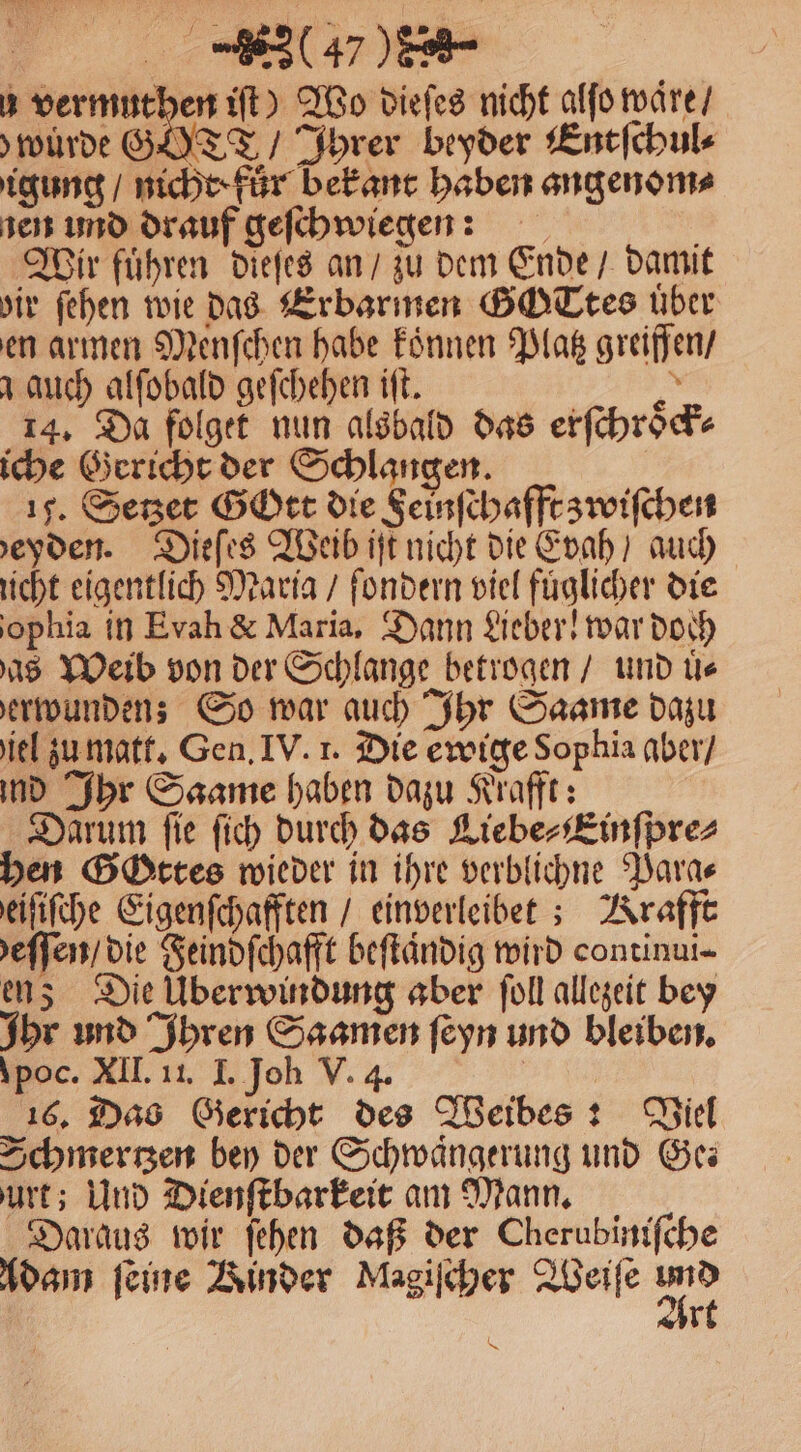 (47)
u vermuthen iſt) Wo dieſes nicht alſo waͤre/
wuͤrde GOTT/ Ihrer beyder Entſchul⸗
igung/ nicht fuͤr bekant haben angenom⸗
nen und drauf geſchwiegen:
Wir fuͤhren dieſes an/ zu dem Ende/ damit
vir ſehen wie das Erbarmen GOTtes uͤber
en armen Menſchen habe koͤnnen Platz greiffen/
a auch alſobald geſchehen iſt.
14. Da folget nun alsbald das erſchroͤck⸗
iche Gericht der Schlangen.
15. Setzet GOtt die Feinſchafft zwiſchen
eyden. Dieſes Weib iſt nicht die Evah/ auch
nicht eigentlich Maria/ ſondern viel fuͤglicher die
ophia in Evah & Maria. Dann Lieber! war doch
as Weib von der Schlange betrogen/ und uͤ⸗
erwunden; So war auch Ihr Saame dazu
iel zu matt. Gen. IV. 1. Die ewige Sophia aber/
ind Ihr Saame haben dazu Krafft:
Darum ſie ſich durch das Liebe⸗Einſpre⸗
hen GOttes wieder in ihre verblichne Para⸗
eiſiſche Eigenſchafften/ einverleibet; Krafft
eſſen/ die Feindſchafft beſtaͤndig wird continui-
en; Die Uberwindung aber ſoll allezeit bey
Ihr und Ihren Saamen ſeyn und bleiben.
Apoc. XII. 11. I. Joh V. 4.
16. Das Gericht des Weibes: Viel
Schmertzen bey der Schwaͤngerung und Ge⸗
urt; Und Dienſtbarkeit am Mann.
Daraus wir ſehen daß der Cherubiniſche
Adam ſeine Kinder Magiſcher Weiſe und
Art